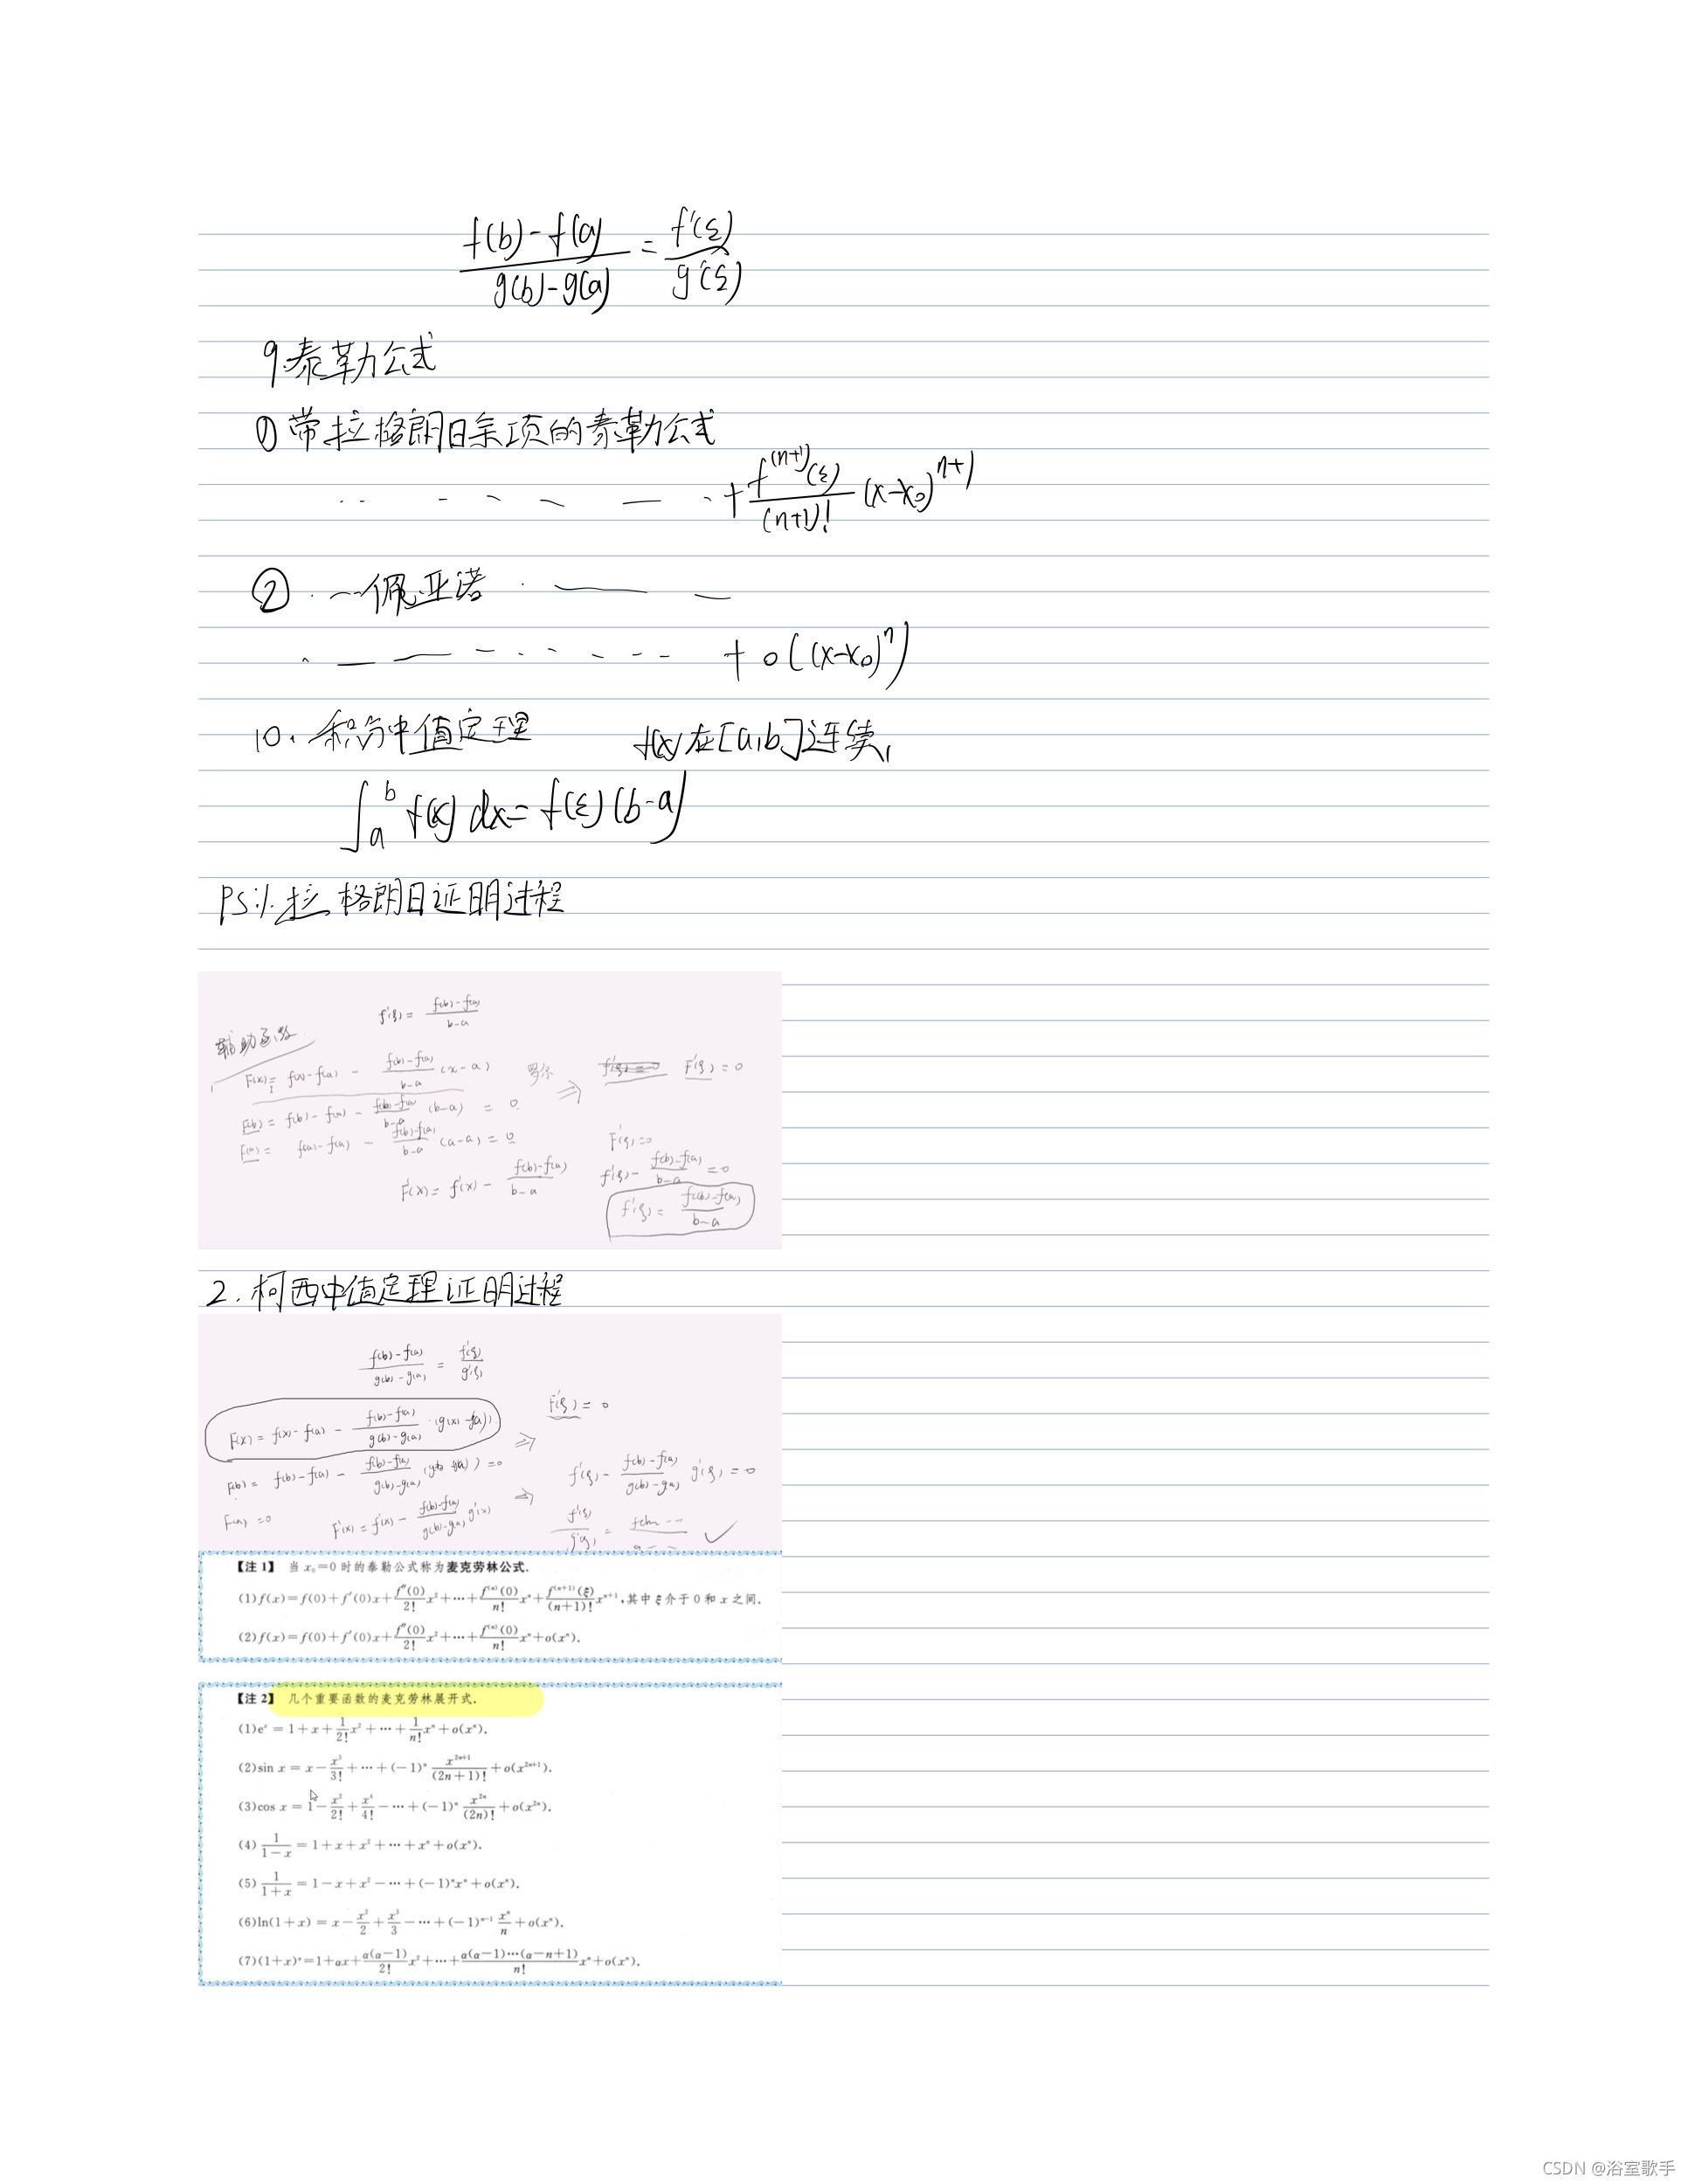 f(b)-f(a) / g(b)-g(a) = f'(ξ) / g'(ξ)
9.泰勒公式
① 带拉格朗日余项的泰勒公式
+ f^(n+1)(ξ) / (n+1)! (x-x₀)^(n+1)
② 佩亚诺
+ o((x-x₀)^n)
10. 积分中值定理 f(x)在[a,b]连续,
∫_a^b f(x) dx = f(ξ)(b-a)
PS:1.拉格朗日证明过程
f'(ξ) = f(b)-f(a) / b-a
辅助函数
F(x) = f(x)-f(a) - f(b)-f(a) / b-a (x-a) 罗尔 ⇒ F'(ξ) = 0
F(b) = f(b)-f(a) - f(b)-f(a) / b-a (b-a) = 0
F(a) = f(a)-f(a) - f(b)-f(a) / b-a (a-a) = 0 F'(ξ)=0
F'(x) = f'(x) - f(b)-f(a) / b-a f'(ξ) - f(b)-f(a) / b-a = 0
f'(ξ) = f(b)-f(a) / b-a
2. 柯西中值定理证明过程
f(b)-f(a) / g(b)-g(a) = f'(ξ) / g'(ξ)
F(x) = f(x)-f(a) - f(b)-f(a) / g(b)-g(a) · ⇒ F'(ξ) = 0
F(b) = f(b)-f(a) - f(b)-f(a) / g(b)-g(a) = 0 f'(ξ) - f(b)-f(a) / g(b)-g(a) g'(ξ) = 0
F(a) = 0 F'(x) = f'(x) - f(b)-f(a) / g(b)-g(a) g'(x) ⇒ f'(ξ) / g'(ξ) = ✓
【注 1】 当 x₀=0 时的泰勒公式称为麦克劳林公式.
(1) f(x)=f(0)+f'(0)x+f''(0)/2! x²+⋯+f^(n)(0)/n! x^n+f^(n+1)(ξ)/(n+1)! x^(n+1),其中 ξ 介于 0 和 x 之间.
(2) f(x)=f(0)+f'(0)x+f''(0)/2! x²+⋯+f^(n)(0)/n! x^n+o(x^n).
【注 2】 几个重要函数的麦克劳林展开式.
(1) e^x=1+x+1/2! x²+⋯+1/n! x^n+o(x^n).
(2) sin x=x-x³/3!+⋯+(-1)^n x^(2n+1)/(2n+1)!+o(x^(2n+1)).
(3) cos x=1-x²/2!+x⁴/4!-⋯+(-1)^n x^(2n)/(2n)!+o(x^(2n)).
(4) 1/(1-x)=1+x+x²+⋯+x^n+o(x^n).
(5) 1/(1+x)=1-x+x²-⋯+(-1)^n x^n+o(x^n).
(6) ln(1+x)=x-x²/2+x³/3-⋯+(-1)^(n-1) x^n/n+o(x^n).
(7) (1+x)^α=1+αx+α(α-1)/2! x²+⋯+α(α-1)⋯(α-n+1)/n! x^n+o(x^n).
CSDN @浴室歌手